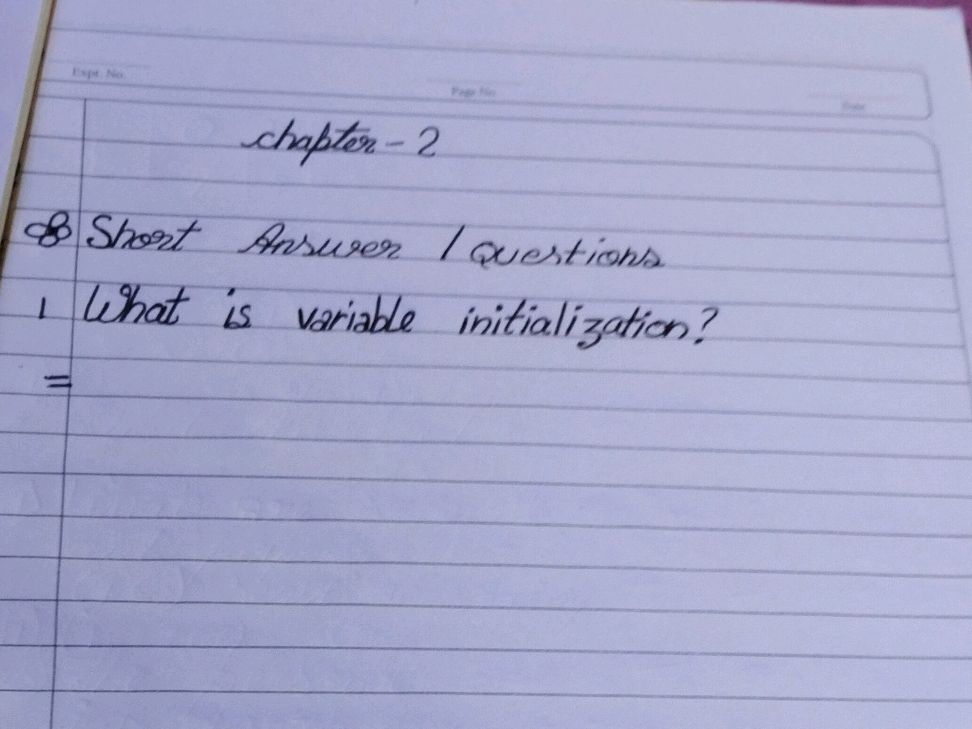 Expt. No.
Page No.
Date
chapter - 2
Short Answer / Questions
1 What is variable initialization?
=